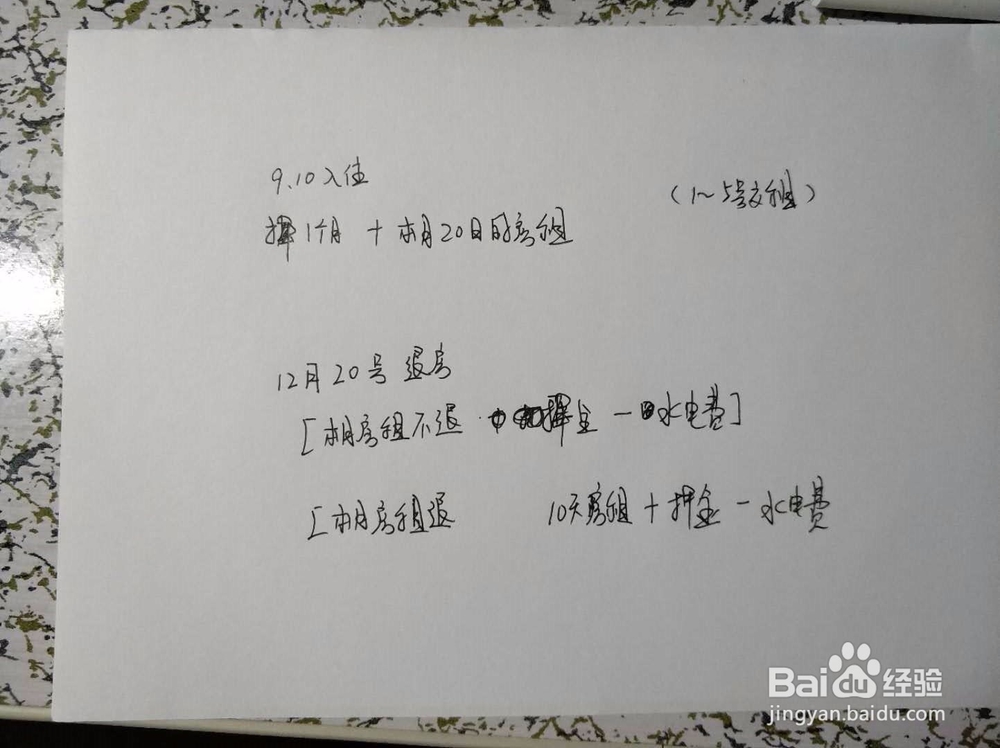 9.10入住
（1~5号交租）
押1个月 + 本月20日的房租
12月20号 退房
[本月房租不退 押金 - 水电费]
[本月房租退 10天房租 + 押金 - 水电费
Baidu经验
jingyan.baidu.com